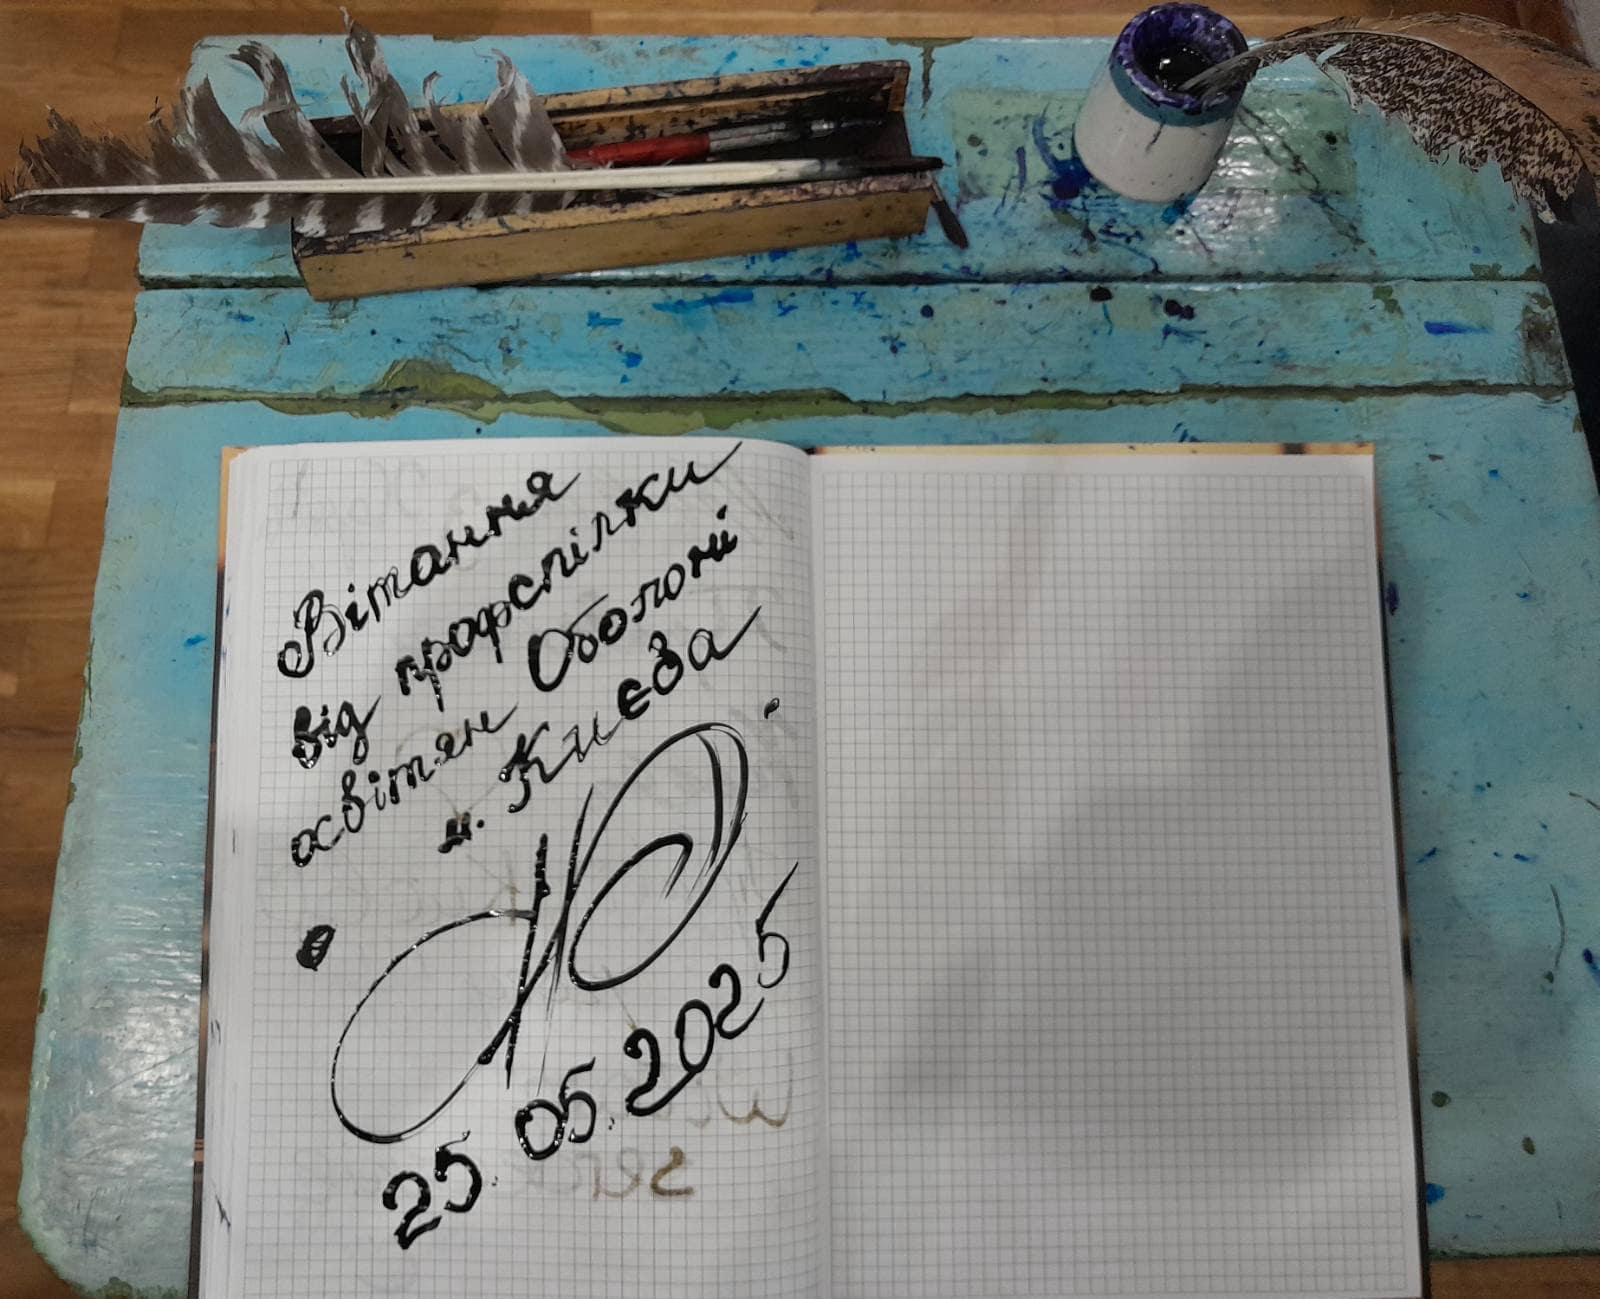 Вітання
від профспілки
освітян Оболоні
м. Києва
25.05.2025